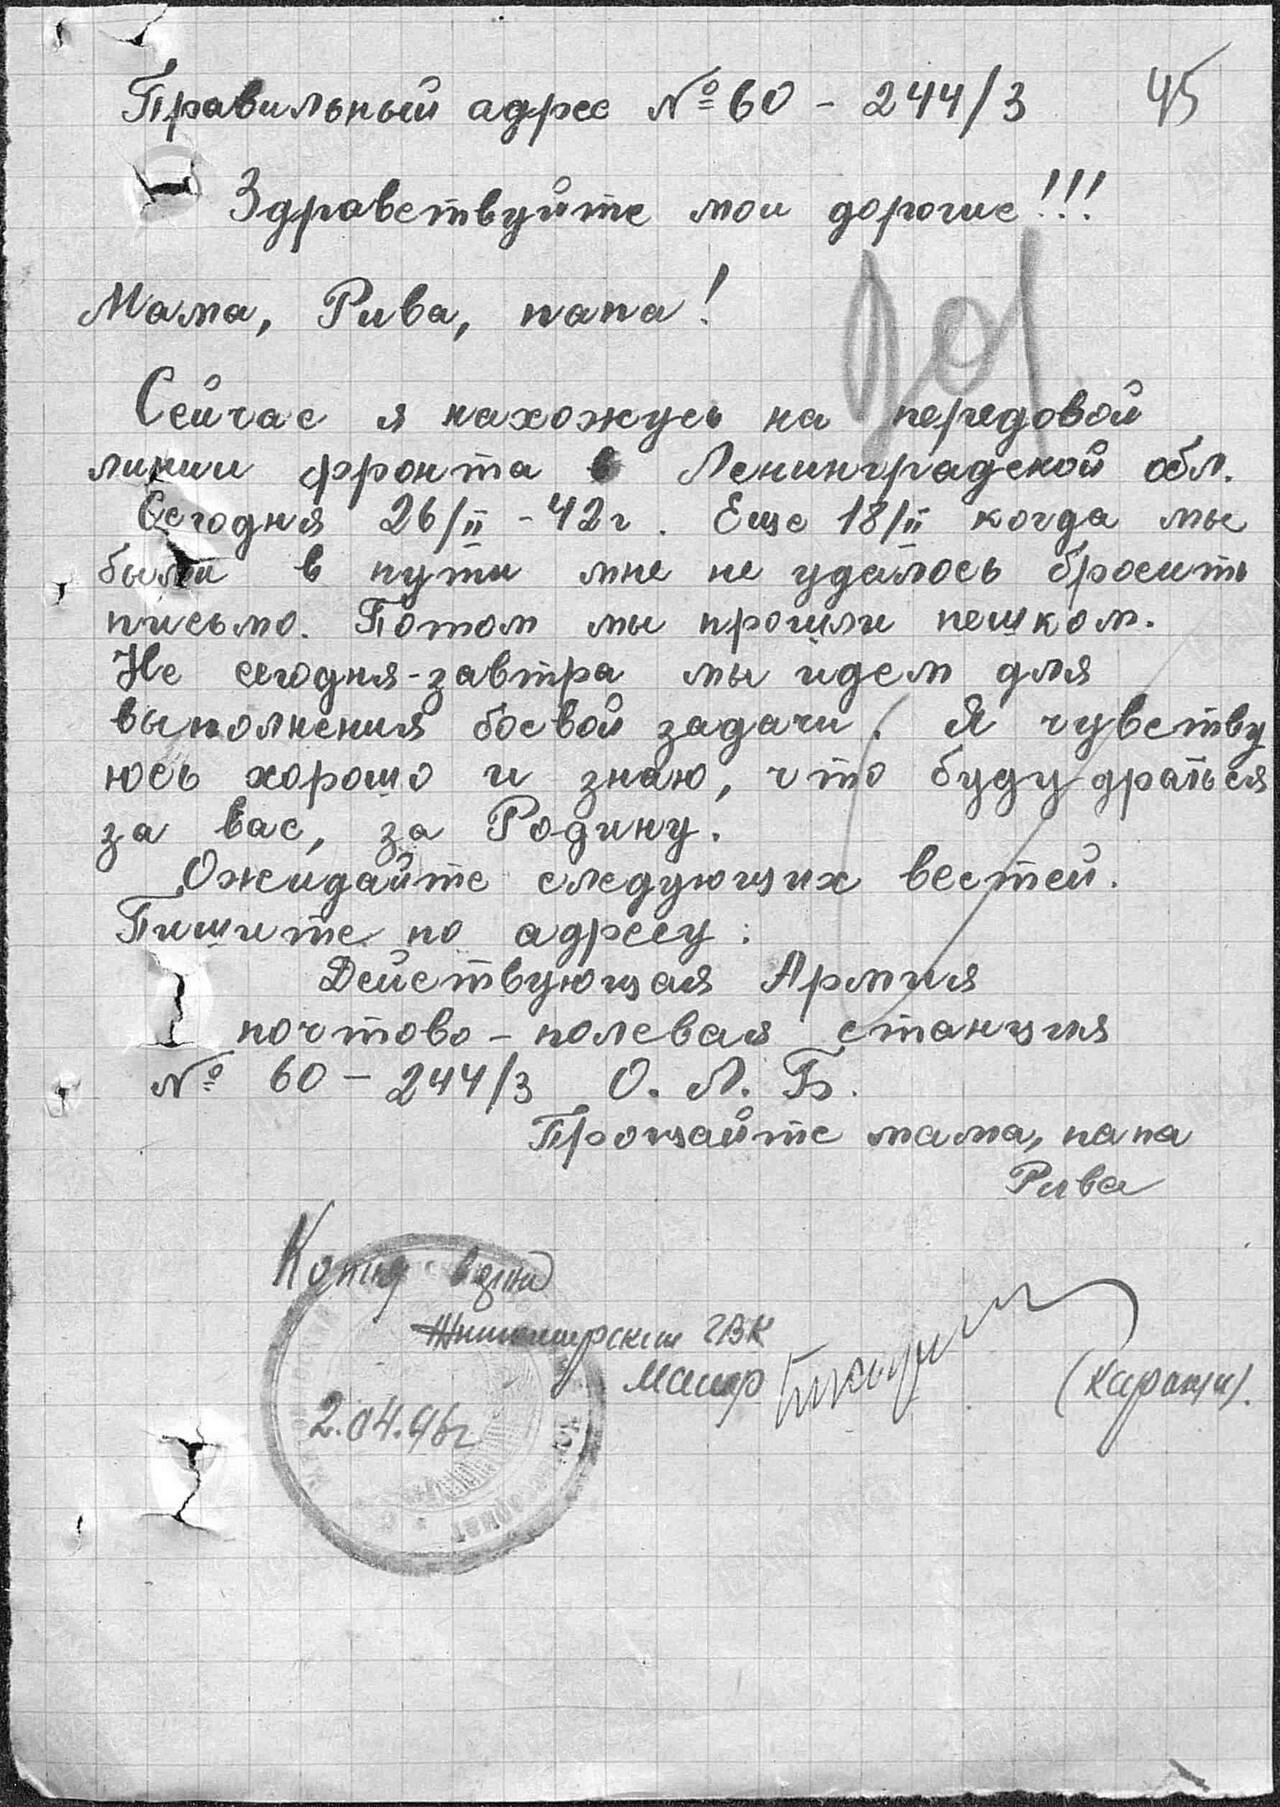 Правильный адрес № 60 - 244/3 45
Здравствуйте мои дорогие!!!
Мама, Рива, папа!
Сейчас я нахожусь на передовой
линии фронта в Ленинградской обл.
Сегодня 26/II - 42 г. Еще 18/II когда мы
были в пути мне не удалось бросить
письмо. Потом мы прошли пешком.
Не сегодня-завтра мы идем для
выполнения боевой задачи. Я чувству
юсь хорошо и знаю, что буду драться
за вас, за Родину.
Ожидайте следующих вестей.
Пишите по адресу:
Действующая Армия
почтово - полевая станция
№ 60 - 244/3 О. Л. Б.
Прощайте мама, папа
Рива
Копия верна
Житомирский ГВК
Майор
2.04.46г